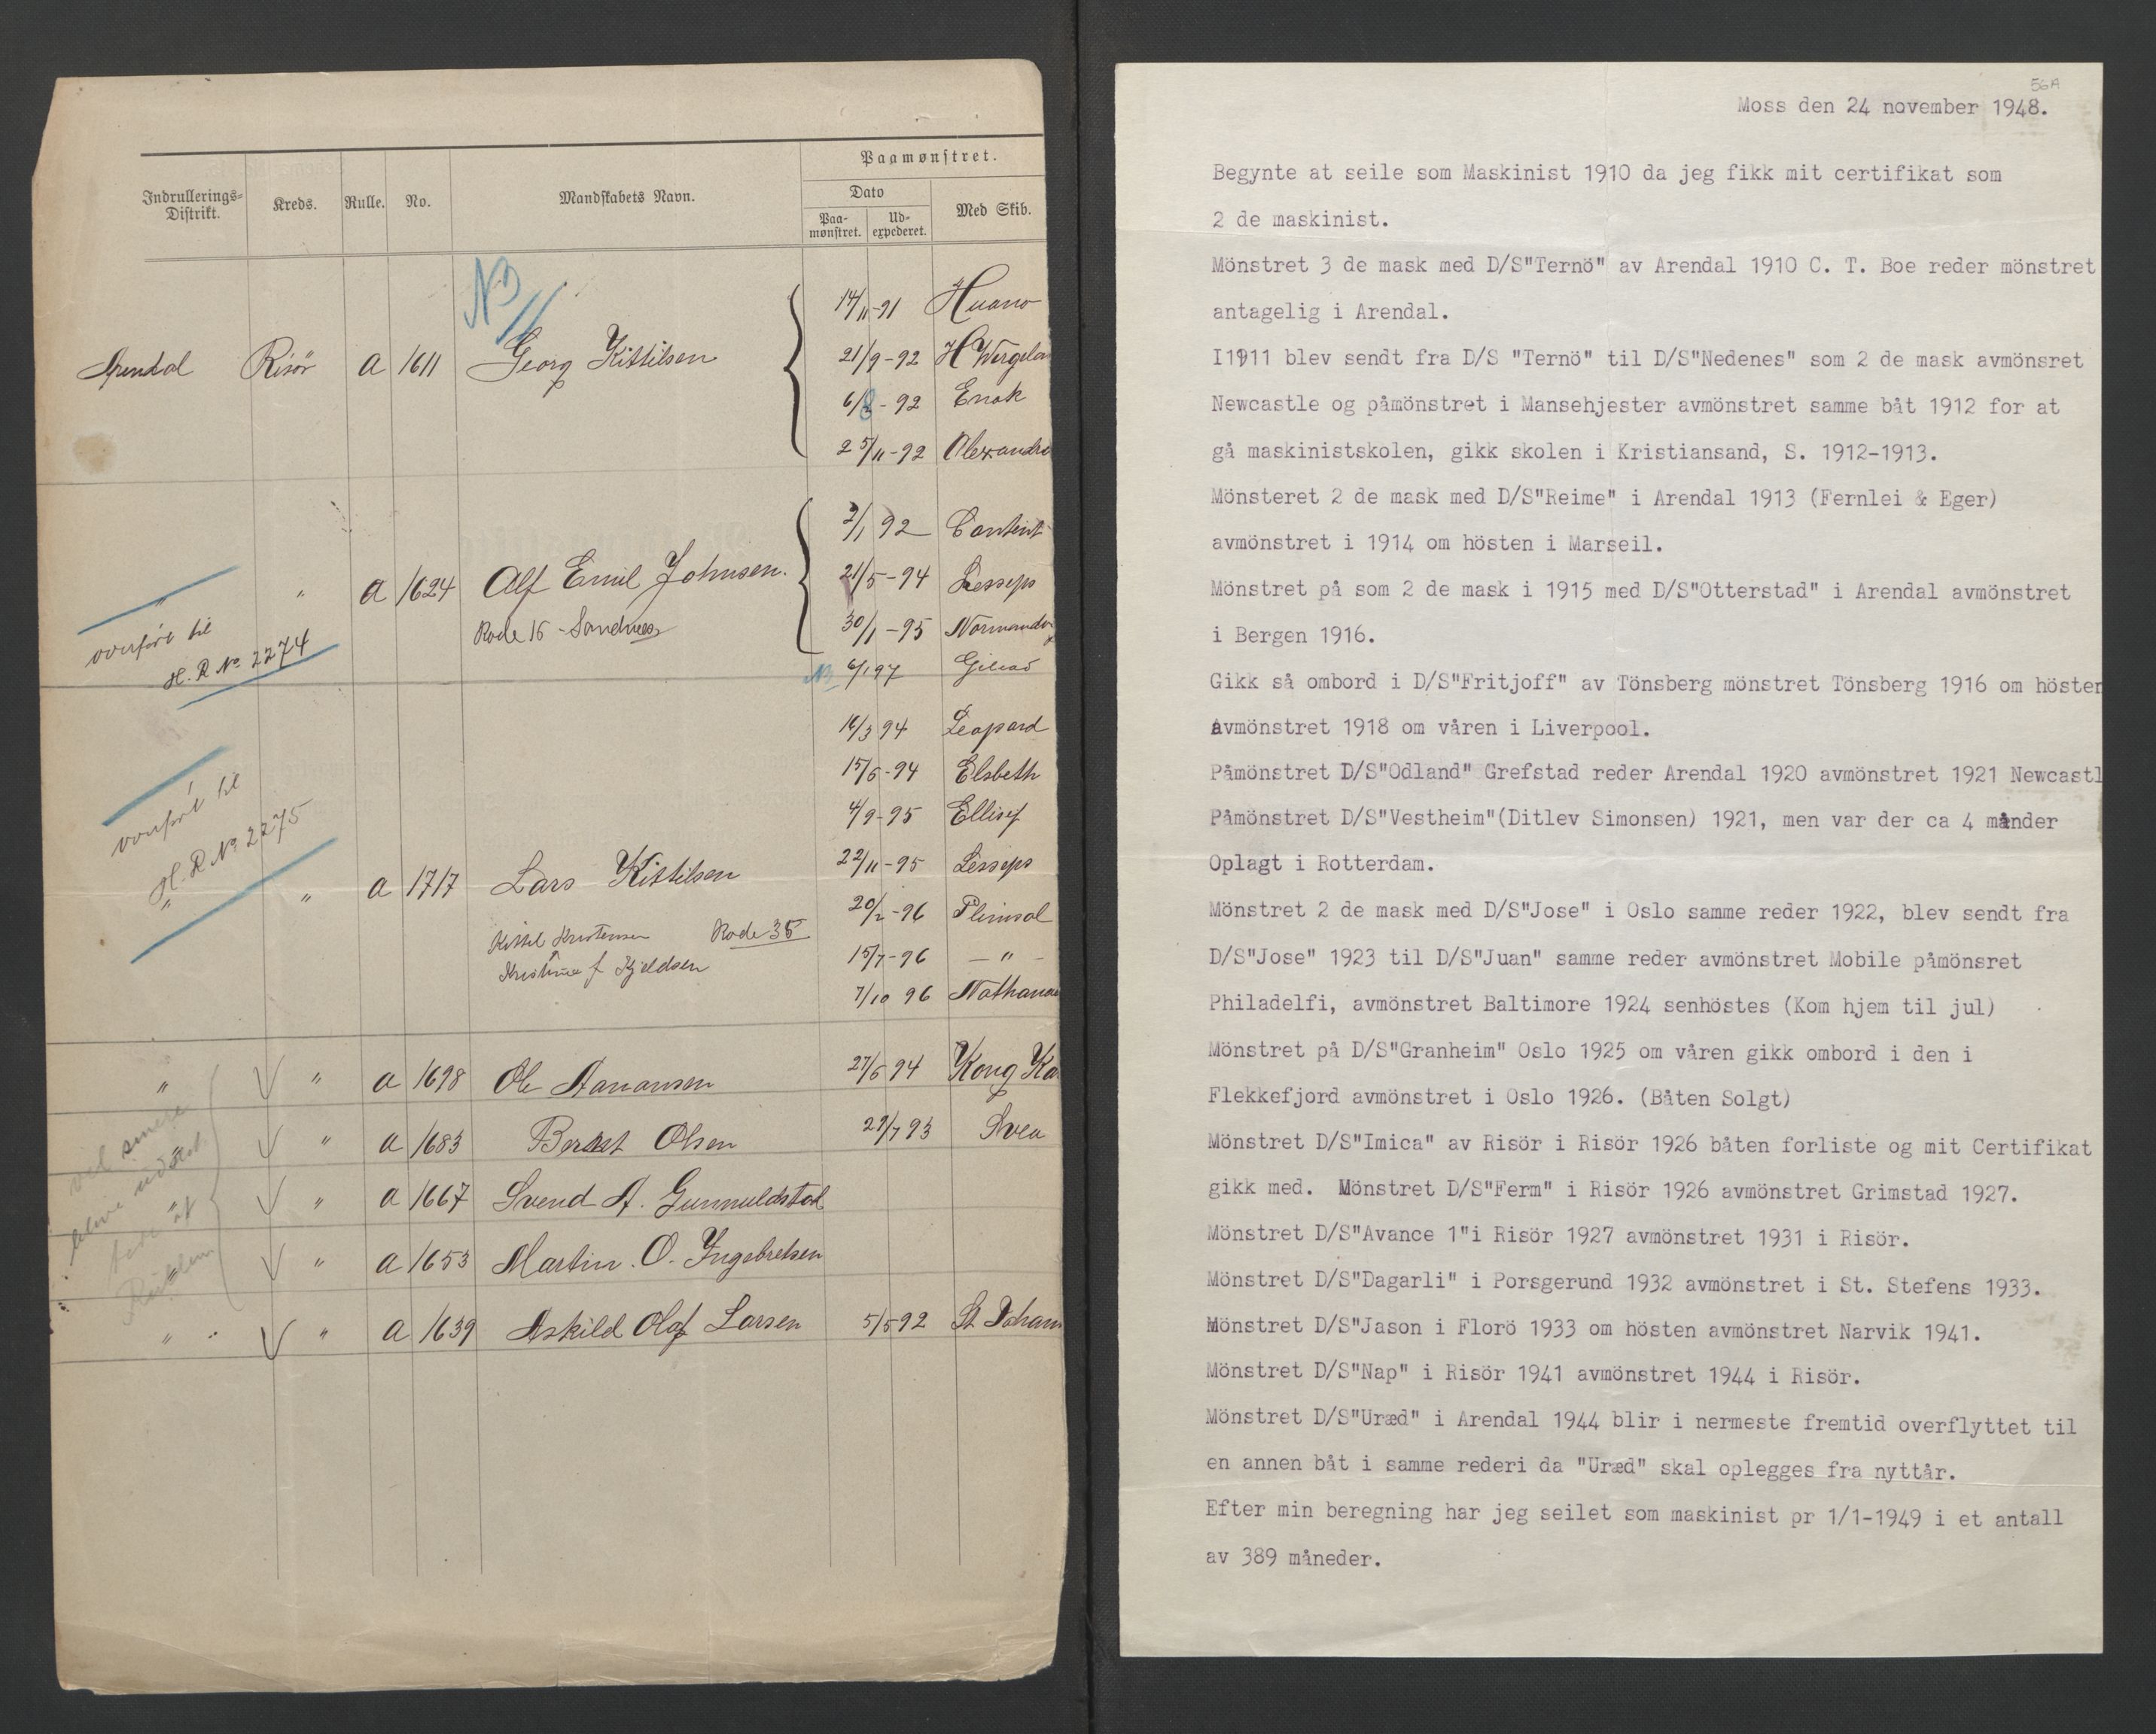 Paamønstret.
Indrullerings-
Distrikt.
Kreds.
Rulle.
No.
Mandskabets Navn.
Dato
Med Skib.
Paa-
mønstret.
Ud-
expederet.
NB
14/11-91 Huano
Arendal Risör a 1611 Georg Kittilsen 21/9-92 H Wergelan
6/8-92 Enok
25/11-92 Alexandra
2/1 92 Contest
" " a 1624 Alf Emil Johnsen. 21/5-94 Lesseps
overført til Rode 16 - Sandnes 30/1-95 Normandy
H. R No 2274 NB 6/1 97 Gilead
16/3 94 Leopard
15/6-94 Elsbeth
overført til 4/9-95 Ellisif
H. R No 2275
" " a 1717 Lars Kittilsen 22/11-95 Lesseps
20/2-96 Plimsol
Kittel Kristensen Rode 35 15/7-96 — " —
Kristine f Kjeldsen 7/10 96 Nathanae
" " a 1698 Ole Aanansen 27/6 94 Kong Ka
" " a 1683 Berent Olsen 29/7 93 Svea
" " a 1667 Svend A. Gunnuldstad
" " a 1653 Martin. O. Ingebretsen
" " a 1639 Askild Olaf Larsen 5/5 92 St Johan
56A
Moss den 24 november 1948.
Begynte at seile som Maskinist 1910 da jeg fikk mit certifikat som
2 de maskinist.
Mönstret 3 de mask med D/S"Ternö" av Arendal 1910 C. T. Boe reder mönstret
antagelig i Arendal.
I1911 blev sendt fra D/S "Ternö" til D/S"Nedenes" som 2 de mask avmönsret
Newcastle og påmönstret i Mansehjester avmönstret samme båt 1912 for at
gå maskinistskolen, gikk skolen i Kristiansand, S. 1912-1913.
Mönsteret 2 de mask med D/S"Reime" i Arendal 1913 (Fernlei & Eger)
avmönstret i 1914 om hösten i Marseil.
Mönstret på som 2 de mask i 1915 med D/S"Otterstad" i Arendal avmönstret
i Bergen 1916.
Gikk så ombord i D/S"Fritjoff" av Tönsberg mönstret Tönsberg 1916 om hösten
Avmönstret 1918 om våren i Liverpool.
Påmönstret D/S"Odland" Grefstad reder Arendal 1920 avmönstret 1921 Newcastl
Påmönstret D/S"Vestheim"(Ditlev Simonsen) 1921, men var der ca 4 månder
Oplagt i Rotterdam.
Mönstret 2 de mask med D/S"Jose" i Oslo samme reder 1922, blev sendt fra
D/S"Jose" 1923 til D/S"Juan" samme reder avmönstret Mobile påmönsret
Philadelfi, avmönstret Baltimore 1924 senhöstes (Kom hjem til jul)
Mönstret på D/S"Granheim" Oslo 1925 om våren gikk ombord i den i
Flekkefjord avmönstret i Oslo 1926. (Båten Solgt)
Mönstret D/S"Imica" av Risör i Risör 1926 båten forliste og mit Certifikat
gikk med. Mönstret D/S"Ferm" i Risör 1926 avmönstret Grimstad 1927.
Mönstret D/S"Avance 1"i Risör 1927 avmönstret 1931 i Risör.
Mönstret D/S"Dagarli" i Porsgerund 1932 avmönstret i St. Stefens 1933.
Mönstret D/S"Jason i Florö 1933 om hösten avmönstret Narvik 1941.
Mönstret D/S"Nap" i Risör 1941 avmönstret 1944 i Risör.
Mönstret D/S"Uræd" i Arendal 1944 blir i nermeste fremtid overflyttet til
en annen båt i samme rederi da "Uræd" skal oplegges fra nyttår.
Efter min beregning har jeg seilet som maskinist pr 1/1-1949 i et antall
av 389 måneder.